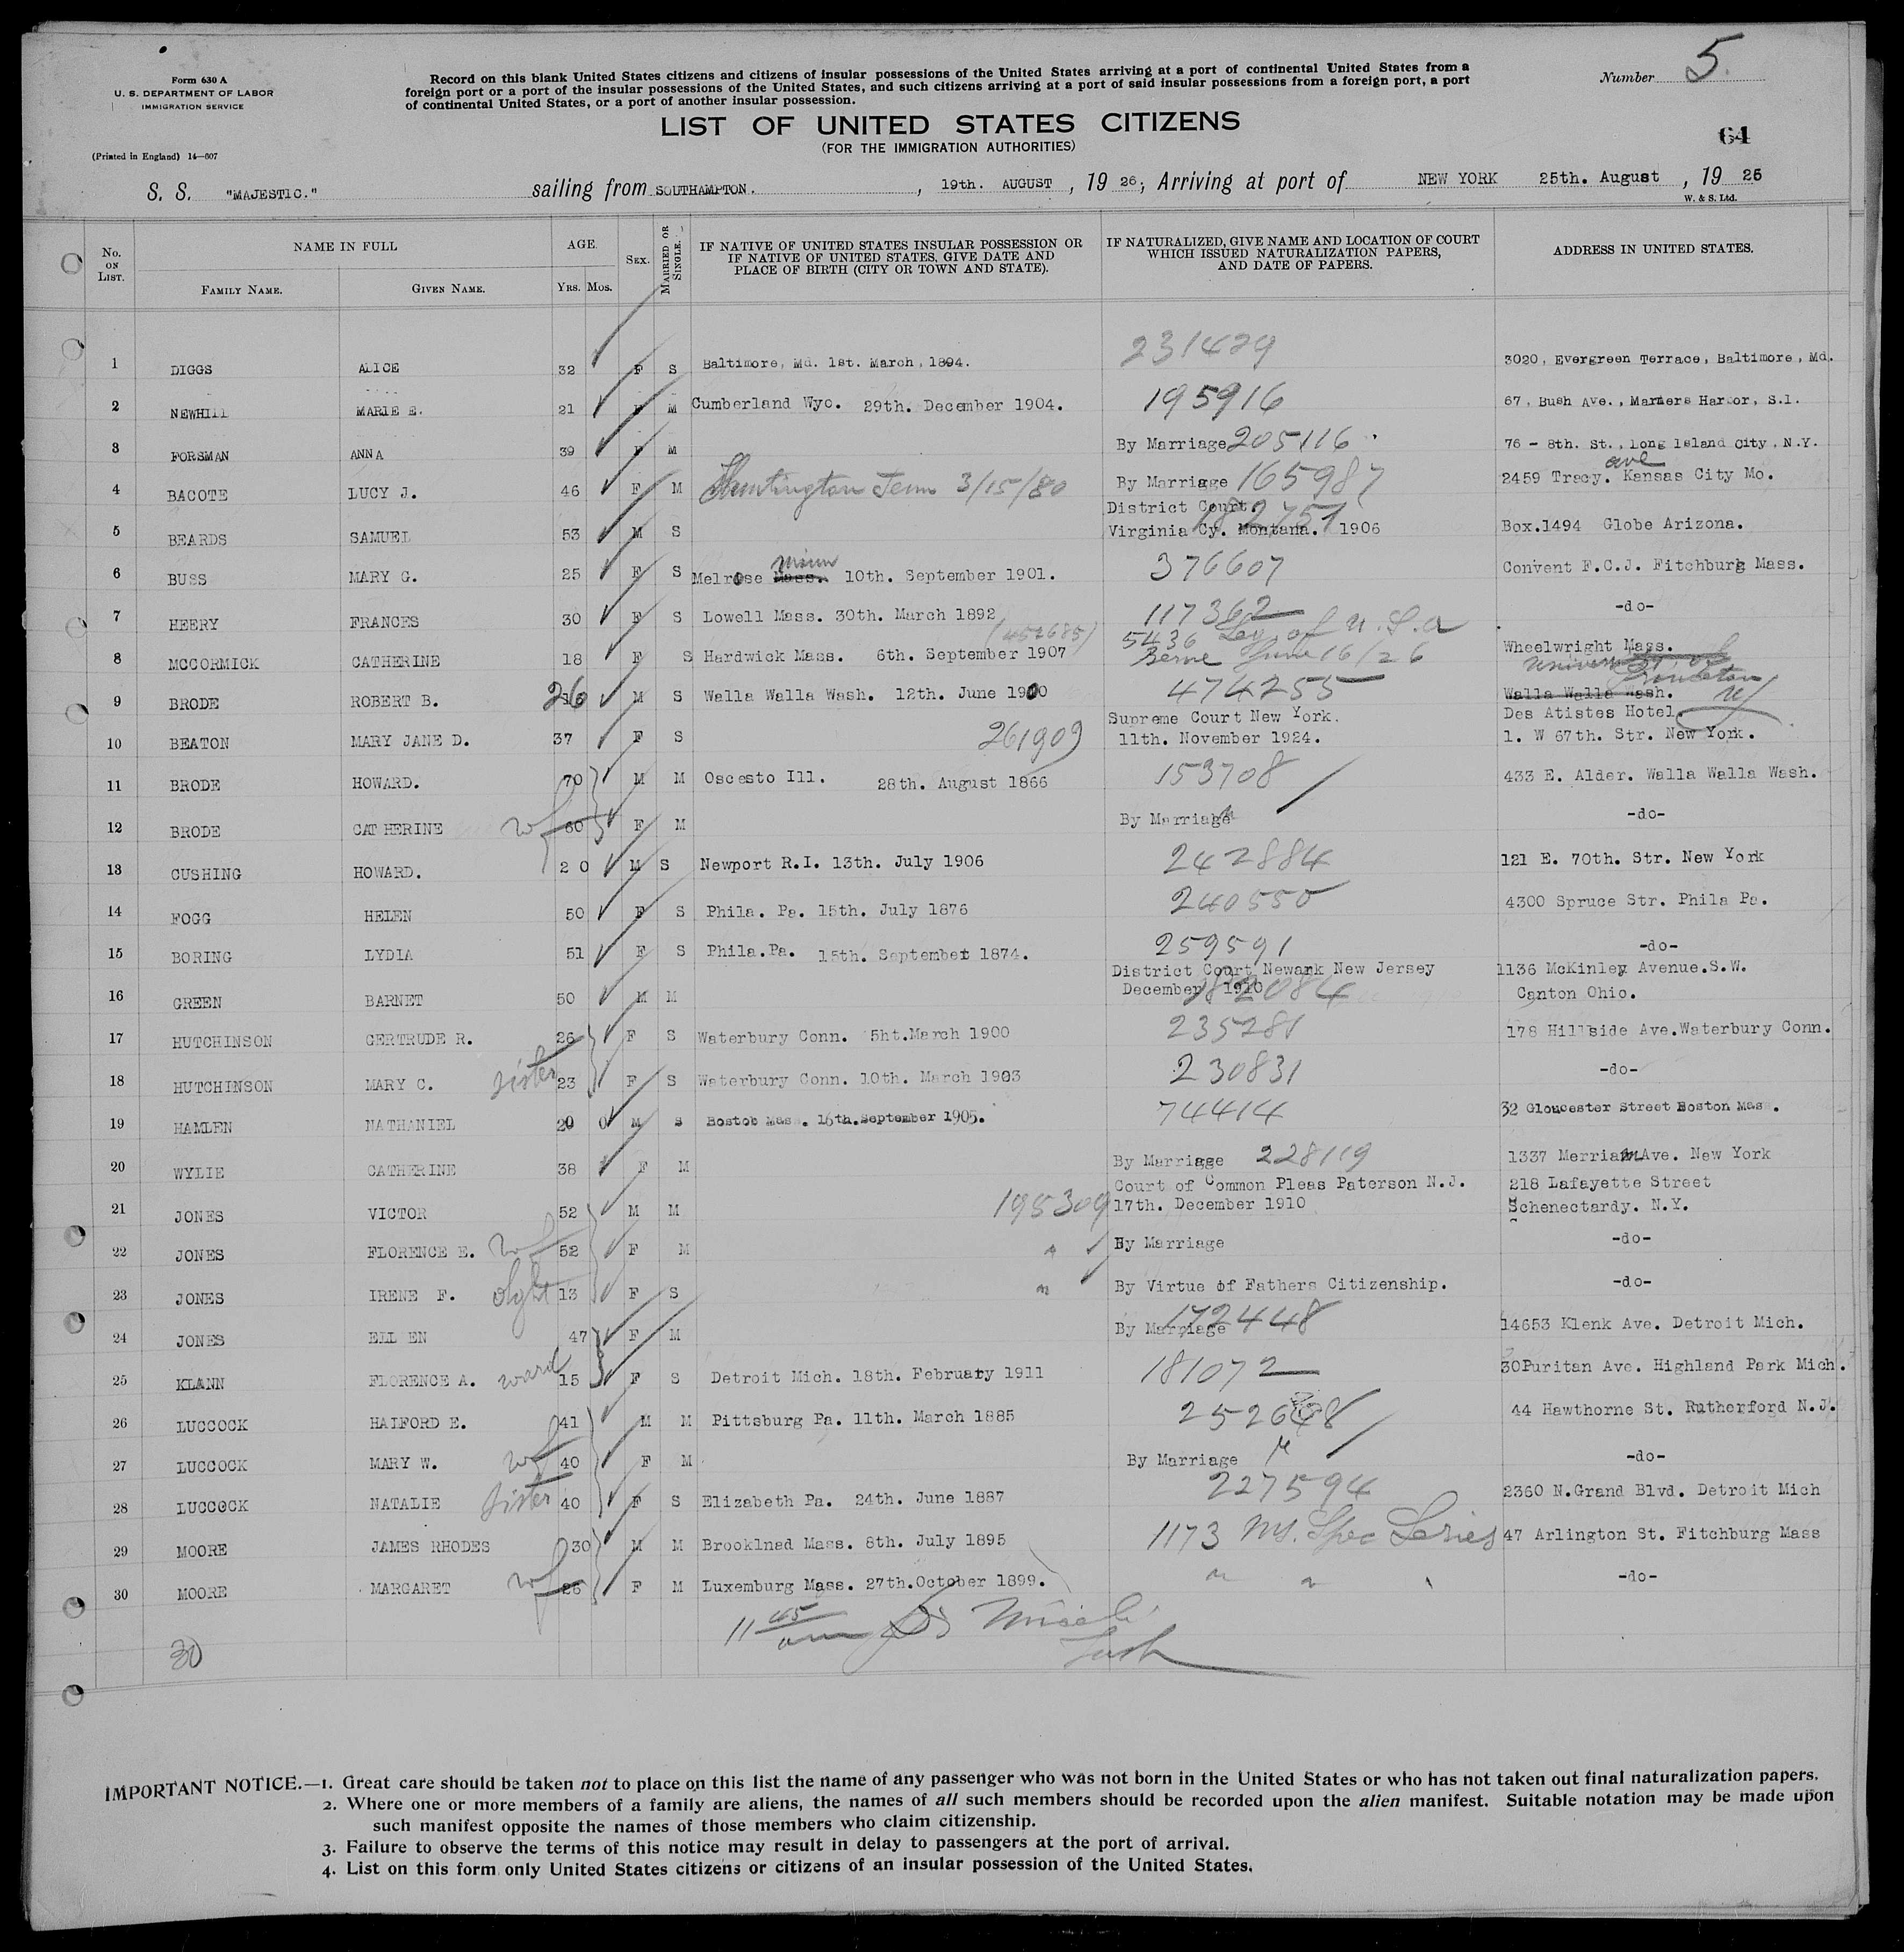 Form 630 A
U. S. DEPARTMENT OF LABOR
IMMIGRATION SERVICE
(Printed in England) 14—607
Record on this blank United States citizens and citizens of insular possessions of the United States arriving at a port of continental United States from a
foreign port or a port of the insular possessions of the United States, and such citizens arriving at a port of said insular possessions from a foreign port, a port
of continental United States, or a port of another insular possession.
Number 5.
LIST OF UNITED STATES CITIZENS
(FOR THE IMMIGRATION AUTHORITIES)
64
S. S. "MAJESTIC." sailing from SOUTHAMPTON. , 19th. AUGUST , 19 26; Arriving at port of NEW YORK 25th. August , 19 26
W. & S. Ltd.
No. ON LIST. NAME IN FULL AGE. SEX. MARRIED OR SINGLE. IF NATIVE OF UNITED STATES INSULAR POSSESSION OR IF NATIVE OF UNITED STATES, GIVE DATE AND PLACE OF BIRTH (CITY OR TOWN AND STATE). IF NATURALIZED, GIVE NAME AND LOCATION OF COURT WHICH ISSUED NATURALIZATION PAPERS, AND DATE OF PAPERS. ADDRESS IN UNITED STATES.
FAMILY NAME. GIVEN NAME. YRS. MOS.
1 DIGGS ALICE 32 F S Baltimore, Md. 1st. March, 1894. 231429 3020, Evergreen Terrace, Baltimore, Md.
2 NEWHILL MARIE E. 21 F M Cumberland Wyo. 29th. December 1904. 195916 67, Bush Ave., Mamers Harbor, S.I.
3 FORSMAN ANNA 39 F M By Marriage 205116 76 - 8th. St., Long Island City, N.Y.
4 BACOTE LUCY J. 46 F M Huntington Tenn 3/15/80 By Marriage 165987 2459 Tracy. ave Kansas City Mo.
5 BEARDS SAMUEL 53 M S District Court, 182757
Virginia Cy. Montana. 1906 Box.1494 Globe Arizona.
6 BUSS MARY G. 25 F S Melrose Mass. Minn 10th. September 1901. 376607 Convent F.C.J. Fitchburg Mass.
7 HEERY FRANCES 30 F S Lowell Mass. 30th. March 1892 117362 -do-
(452685) 5436 Leg of U.S.A
8 MCCORMICK CATHERINE 18 F S Hardwick Mass. 6th. September 1907 Berne June 16/26 Wheelwright Mass.
University of Princeton
9 BRODE ROBERT B. 26 M S Walla Walla Wash. 12th. June 1900 474255 Walla Walla Wash.
10 BEATON MARY JANE D. 37 F S 261909 Supreme Court New York.
11th. November 1924. Des Atistes Hotel.
1. W 67th. Str. New York.
11 BRODE HOWARD. 70 M M Oscesto Ill. 28th. August 1866 153708 433 E. Alder. Walla Walla Wash.
12 BRODE CATHERINE wf 60 F M By Marriage -do-
13 CUSHING HOWARD. 20 M S Newport R.I. 13th. July 1906 242884 121 E. 70th. Str. New York
14 FOGG HELEN 50 F S Phila. Pa. 15th. July 1876 240550 4300 Spruce Str. Phila Pa.
15 BORING LYDIA 51 F S Phila.Pa. 15th. September 1874. 259591 -do-
16 GREEN BARNET 50 M M District Court Newark New Jersey
December 1910 182084 1136 McKinley Avenue.S.W.
Canton Ohio.
17 HUTCHINSON GERTRUDE R. 26 F S Waterbury Conn. 5ht.March 1900 235281 178 Hillside Ave.Waterbury Conn.
18 HUTCHINSON MARY C. sister 23 F S Waterbury Conn. 10th. March 1903 230831 -do-
19 HAMLEN NATHANIEL 20 0 M S Bostob Mass. 16th.September 1905. 74414 32 Gloucester Street Boston Mass.
20 WYLIE CATHERINE 38 F M By Marriage 228119 1337 Merriam Ave. New York
21 JONES VICTOR 52 M M 195309 Court of Common Pleas Paterson N.J.
17th. December 1910 218 Lafayette Street
Schenectardy. N.Y.
22 JONES FLORENCE E. wf 52 F M By Marriage -do-
23 JONES IRENE F. dght 13 F S By Virtue of Fathers Citizenship. -do-
24 JONES ELLEN 47 F M By Marriage 172448 14653 Klenk Ave. Detroit Mich.
25 KLANN FLORENCE A. ward 15 F S Detroit Mich. 18th. February 1911 181072 30Puritan Ave. Highland Park Mich.
26 LUCCOCK HALFORD E. 41 M M Pittsburg Pa. 11th. March 1885 252648 44 Hawthorne St. Rutherford N.J.
27 LUCCOCK MARY W. wf 40 F M By Marriage -do-
28 LUCCOCK NATALIE sister 40 F S Elizabeth Pa. 24th. June 1887 227594 2360 N.Grand Blvd. Detroit Mich
29 MOORE JAMES RHODES 30 M M Brooklned Mass. 8th. July 1895 1173 Spec Series 47 Arlington St. Fitchburg Mass
30 MOORE MARGARET wf 26 F M Luxemburg Mass. 27th.October 1899. " " -do-
11 45 am
30
IMPORTANT NOTICE.—1. Great care should be taken not to place on this list the name of any passenger who was not born in the United States or who has not taken out final naturalization papers.
2. Where one or more members of a family are aliens, the names of all such members should be recorded upon the alien manifest. Suitable notation may be made upon
such manifest opposite the names of those members who claim citizenship.
3. Failure to observe the terms of this notice may result in delay to passengers at the port of arrival.
4. List on this form only United States citizens or citizens of an insular possession of the United States.